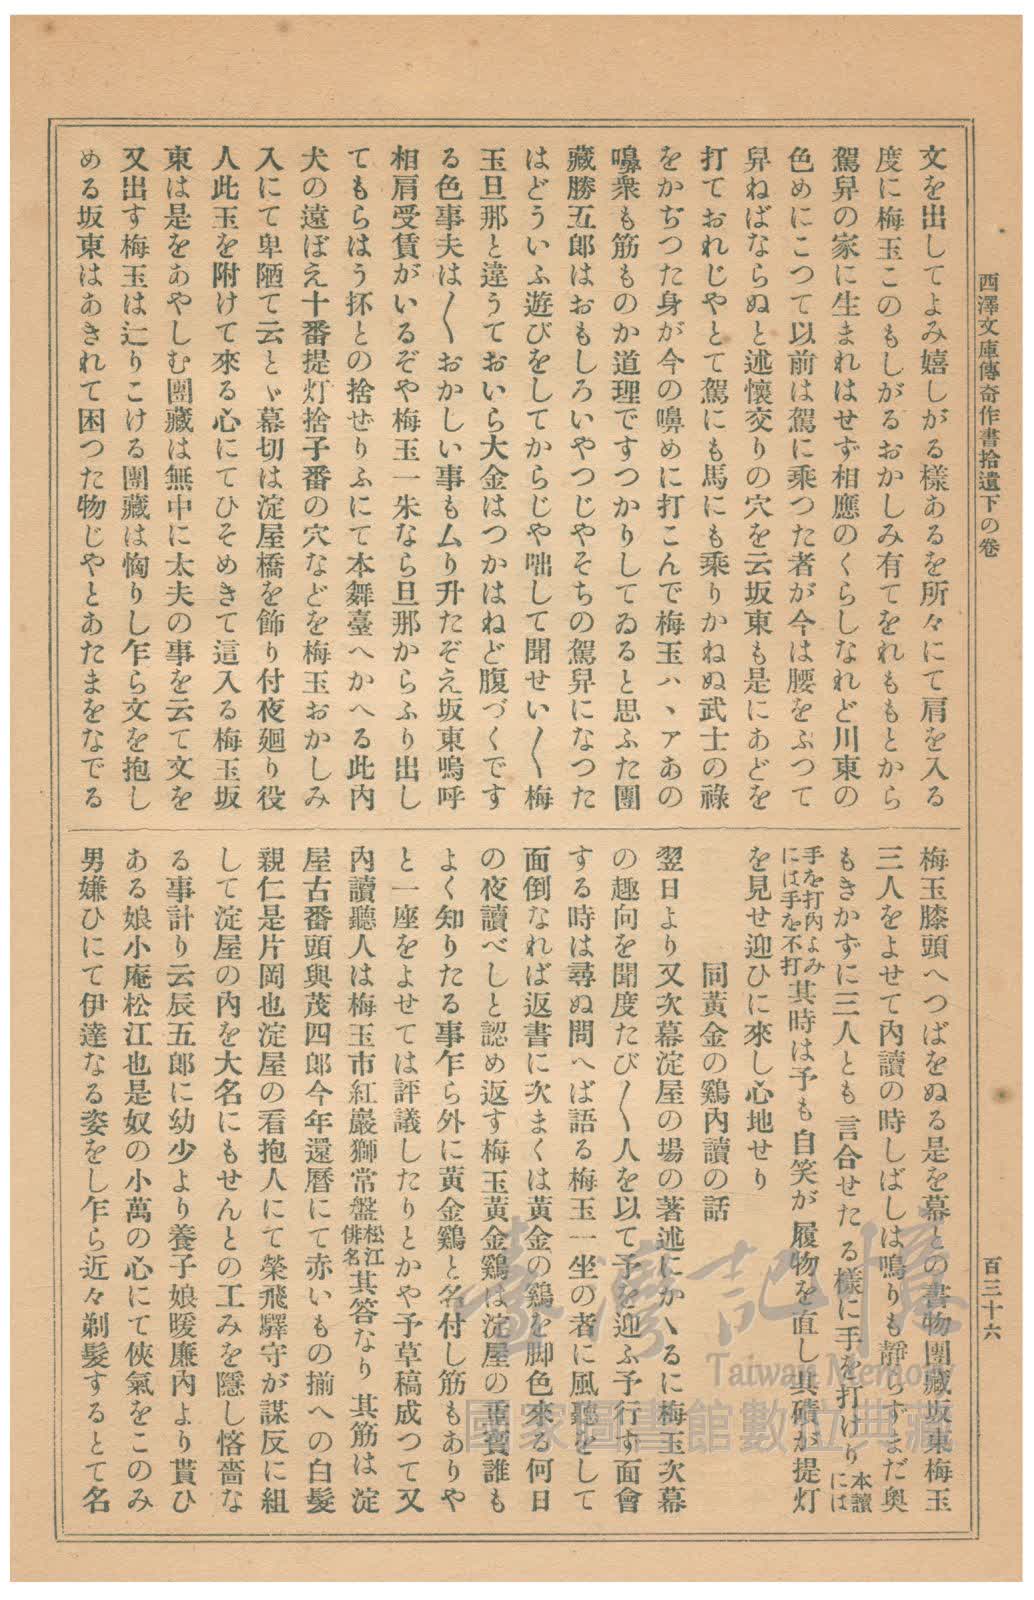 西澤文庫傳奇作書拾遺下の卷
百三十六
文を出してよみ嬉しがる樣あるを所々にて肩を入る
度に梅玉このもしがるおかしみ有てをれももとから
駕舁の家に生まれはせず相應のくらしなれど川東の
色めにこつて以前は駕に乘つた者が今は腰をぶつて
舁ねばならぬと述懷交りの穴を云坂東も是にあどを
打ておれじやとて駕にも馬にも乘りかねぬ武士の祿
をかぢつた身が今の嚊めに打こんで梅玉ハヽァあの
嚊衆も筋ものか道理ですつかりしてゐると思ふた團
藏勝五郎はおもしろいやつじやそちの駕舁になつた
はどういふ遊びをしてからじや咄して聞せい〳〵梅
玉旦那と違うておいら大金はつかはねど腹づくです
る色事夫は〳〵おかしい事もムり升たぞえ坂東嗚呼
相肩受賃がいるぞや梅玉一朱なら旦那からふり出し
てもらはう抔との捨ぜりふにて本舞臺へかへる此内
犬の遠ぼえ十番提灯捨子番の穴などを梅玉おかしみ
入にて卑陋て云とゞ幕切は淀屋橋を飾り付夜廻り役
人此玉を附けて來る心にてひそめきて這入る梅玉坂
東は是をあやしむ團藏は無中に太夫の事を云て文を
又出す梅玉は辷りこける團藏は恟りし乍ら文を抱し
める坂東はあきれて困つた物じやとあたまをなでる
梅玉膝頭へつばをぬる是を幕との書物團藏坂東梅玉
三人をよせて內讀の時しばしは鳴りも靜らずまだ奧
もきかずに三人とも言合せたる樣に手を打けり本讀には
手を打內よみには手を不打其時は予も自笑が履物を直し其磧が提灯
を見せ迎ひに來し心地せり
同黃金の鷄內讀の話
翌日より又次幕淀屋の場の著述にかゝるに梅玉次幕
の趣向を聞度たび〳〵人を以て予を迎ふ予行ず面會
する時は尋ぬ問へば語る梅玉一坐の者に風聽をして
面倒なれば返書に次まくは黃金の鷄を脚色來る何日
の夜讀べしと認め返す梅玉黃金鷄は淀屋の重寶誰も
よく知りたる事乍ら外に黃金鷄と名付し筋もありや
と一座をよせては評議したりとかや予草稿成つて又
內讀聽人は梅玉市紅巖獅常盤松江俳名其答なり其筋は淀
屋古番頭與茂四郎今年還曆にて赤いもの揃への白髮
親仁是片岡也淀屋の看抱人にて榮飛驛守が謀反に組
して淀屋の內を大名にもせんとの工みを隱し悋嗇な
る事計り云辰五郎に幼少より養子娘暖廉內より貰ひ
ある娘小庵松江也是奴の小萬の心にて俠氣をこのみ
男嫌ひにて伊達なる姿をし乍ら近々剃髮するとて名
臺灣記憶
Taiwan Memory
國家圖書館數位典藏